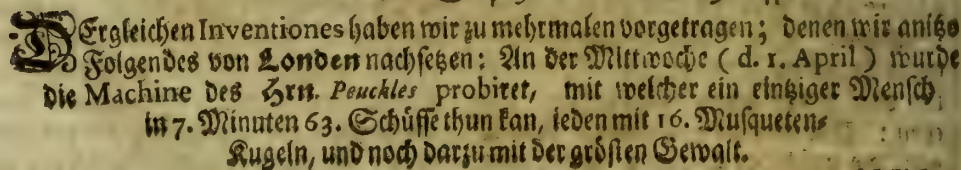 DErgleichen Inventiones haben wir zu mehrmalen vorgetragen; denen wir anitzo
Folgendes von Londen nachsetzen: An der Mittwoche (d. 1. April) wurde
die Machine des Hrn. Peuckles probiret, mit welcher ein eintziger Mensch
in 7. Minuten 63. Schüsse thun kan, ieden mit 16. Musqueten-
Kugeln, und noch darzu mit der grösten Gewalt.